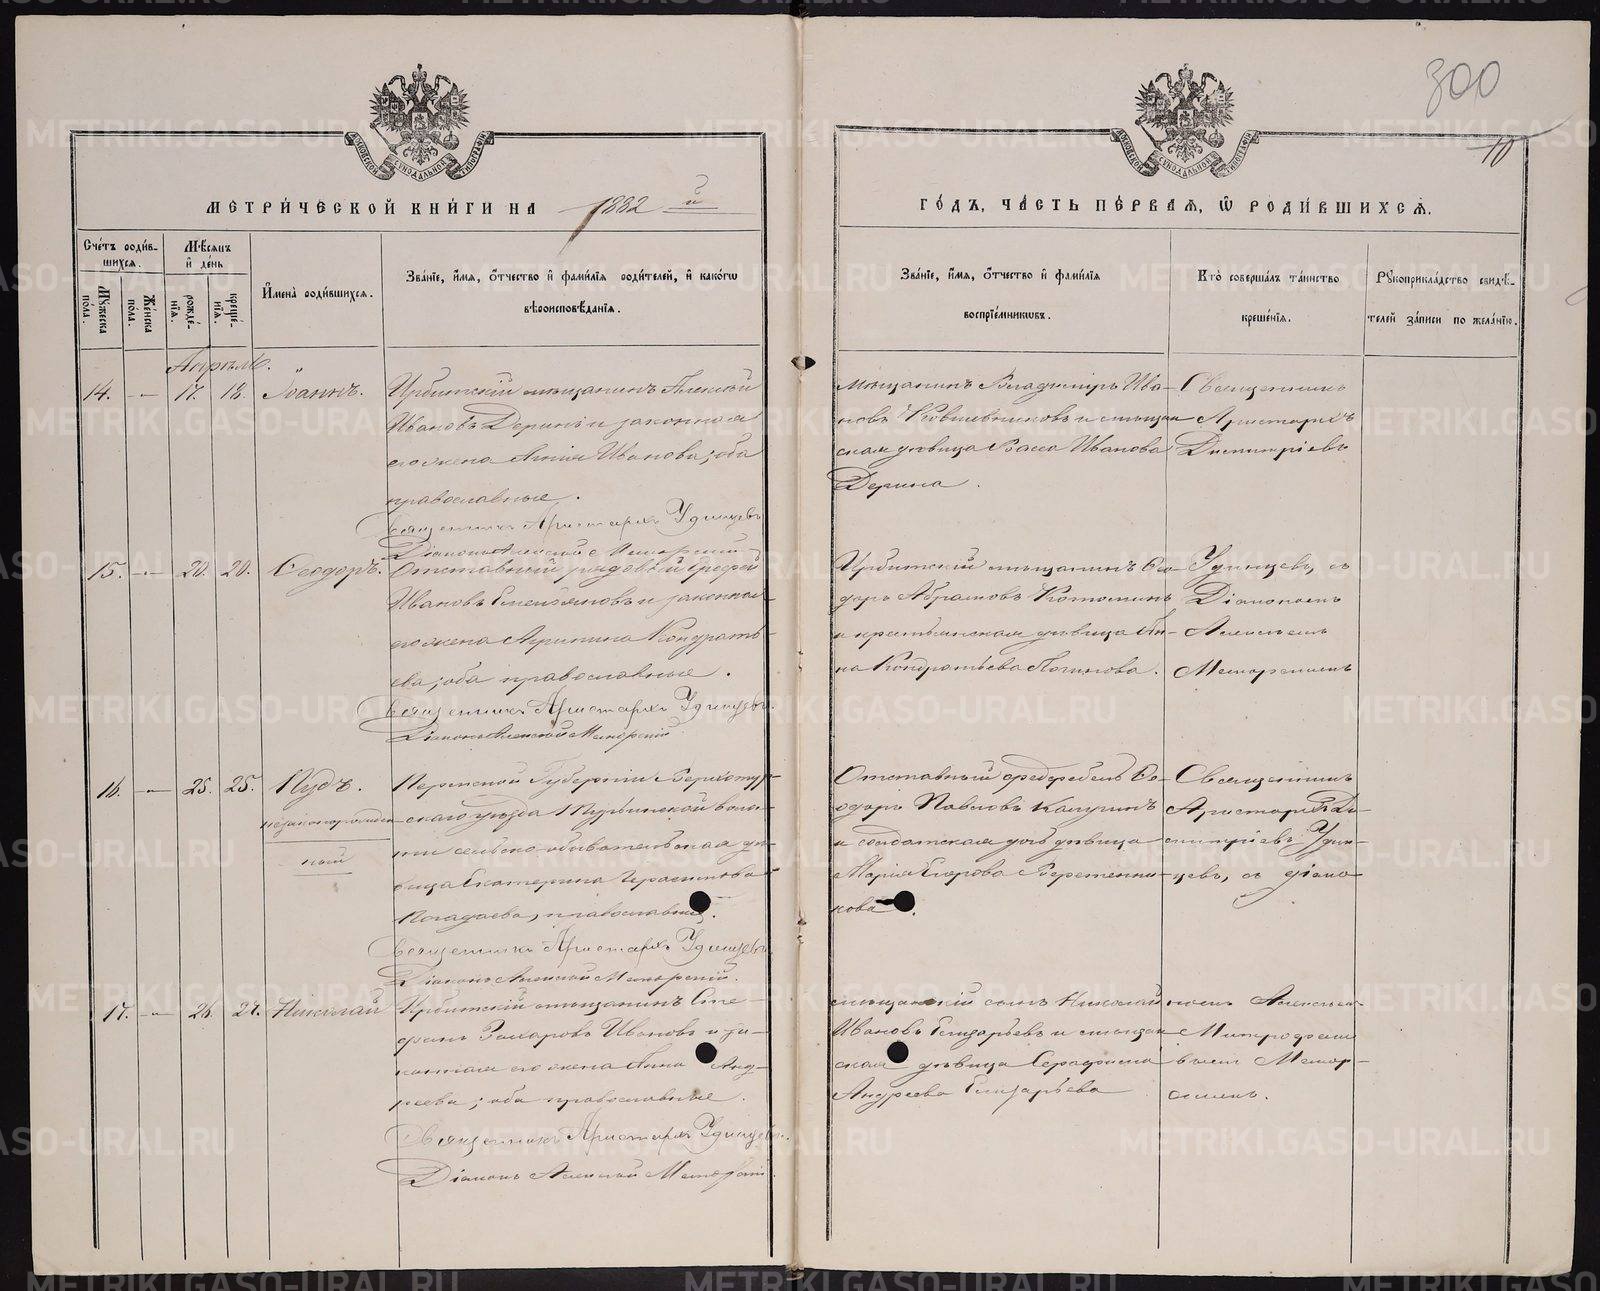 300
10
МЕТРИЧЕСКОЙ КНИГИ НА 1882 й
ГОДЪ, ЧАСТЬ ПЕРВАЯ, Ѡ РОДИВШИХСЯ.
Счетъ родив-
шихся.
Мужеска пола.
Женска пола.
Мѣсяцъ и день
рожде-
нія.
креще-
нія.
Имена родившихся.
Званіе, имя, отчество и фамилія родителей, и какогω
вѣроисповѣданія.
Званіе, имя, отчество и фамилія
воспріемниковъ.
Кто совершалъ таинство
крещенія.
Рукоприкладство свидѣ-
телей записи по желанію.
Апрѣль.
14. — 17. 18. Іоаннъ.
Ирбитскій мѣщанинъ Алексѣй
Ивановъ Деринъ и законная
его жена Анна Иванова; оба
православные.
Священникъ Аристархъ Удинцевъ
Діаконъ Алексѣй Меморскій
мѣщанинъ Владиміръ Ива-
новъ и мѣщан
ская дѣвица Васса Иванова
Дерина.
Священникъ
Аристархъ
Димитріевъ
15. — 20. 20. Ѳеодоръ.
Отставный рядовый
Ивановъ и законная
его жена Агрипина Кондрать-
ева; оба православные.
Священникъ Аристархъ Удинцевъ.
Діаконъ Алексѣй Меморскій
Ирбитскій мѣщанинъ Ѳео-
доръ Абрамовъ
и крестьянская дѣвица Ан-
на Кондратьева Логинова.
Удинцевъ, съ
Діакономъ
Алексѣемъ
Меморскимъ
16. — 25. 25. Пудъ.
незаконнорожден-
ный
Пермской Губерніи Верхотур-
скаго уѣзда волос-
ти сельско-обывательская дѣ-
вица Екатерина Герасимова
Погадаева, православн.
Священникъ Аристархъ Удинцевъ
Діаконъ Алексѣй Меморскій.
Отставный фельдфебель Ѳе-
одоръ Павловъ
и солдатская дочь дѣвица
Марія Егорова Веретенни-
кова.
Священникъ
Аристархъ Ди-
митріевъ Удин-
цевъ, съ діако-
17. — 26. 27. Николай
Ирбитскій мѣщанинъ Сте-
фанъ Захаровъ Ивановъ и за-
конная его жена Анна Анд-
реева; оба православные.
Священникъ Аристархъ Удинцевъ.
Діаконъ Алексѣй Меморскій
мѣщанскій сынъ Николай
Ивановъ Елизарьевъ и мѣщан
ская дѣвица Серафима
Андреева Елизарьева
номъ Алексѣем
Митрофано
вымъ Мемор-
скимъ.
METRIKI.GASO-URAL.RU